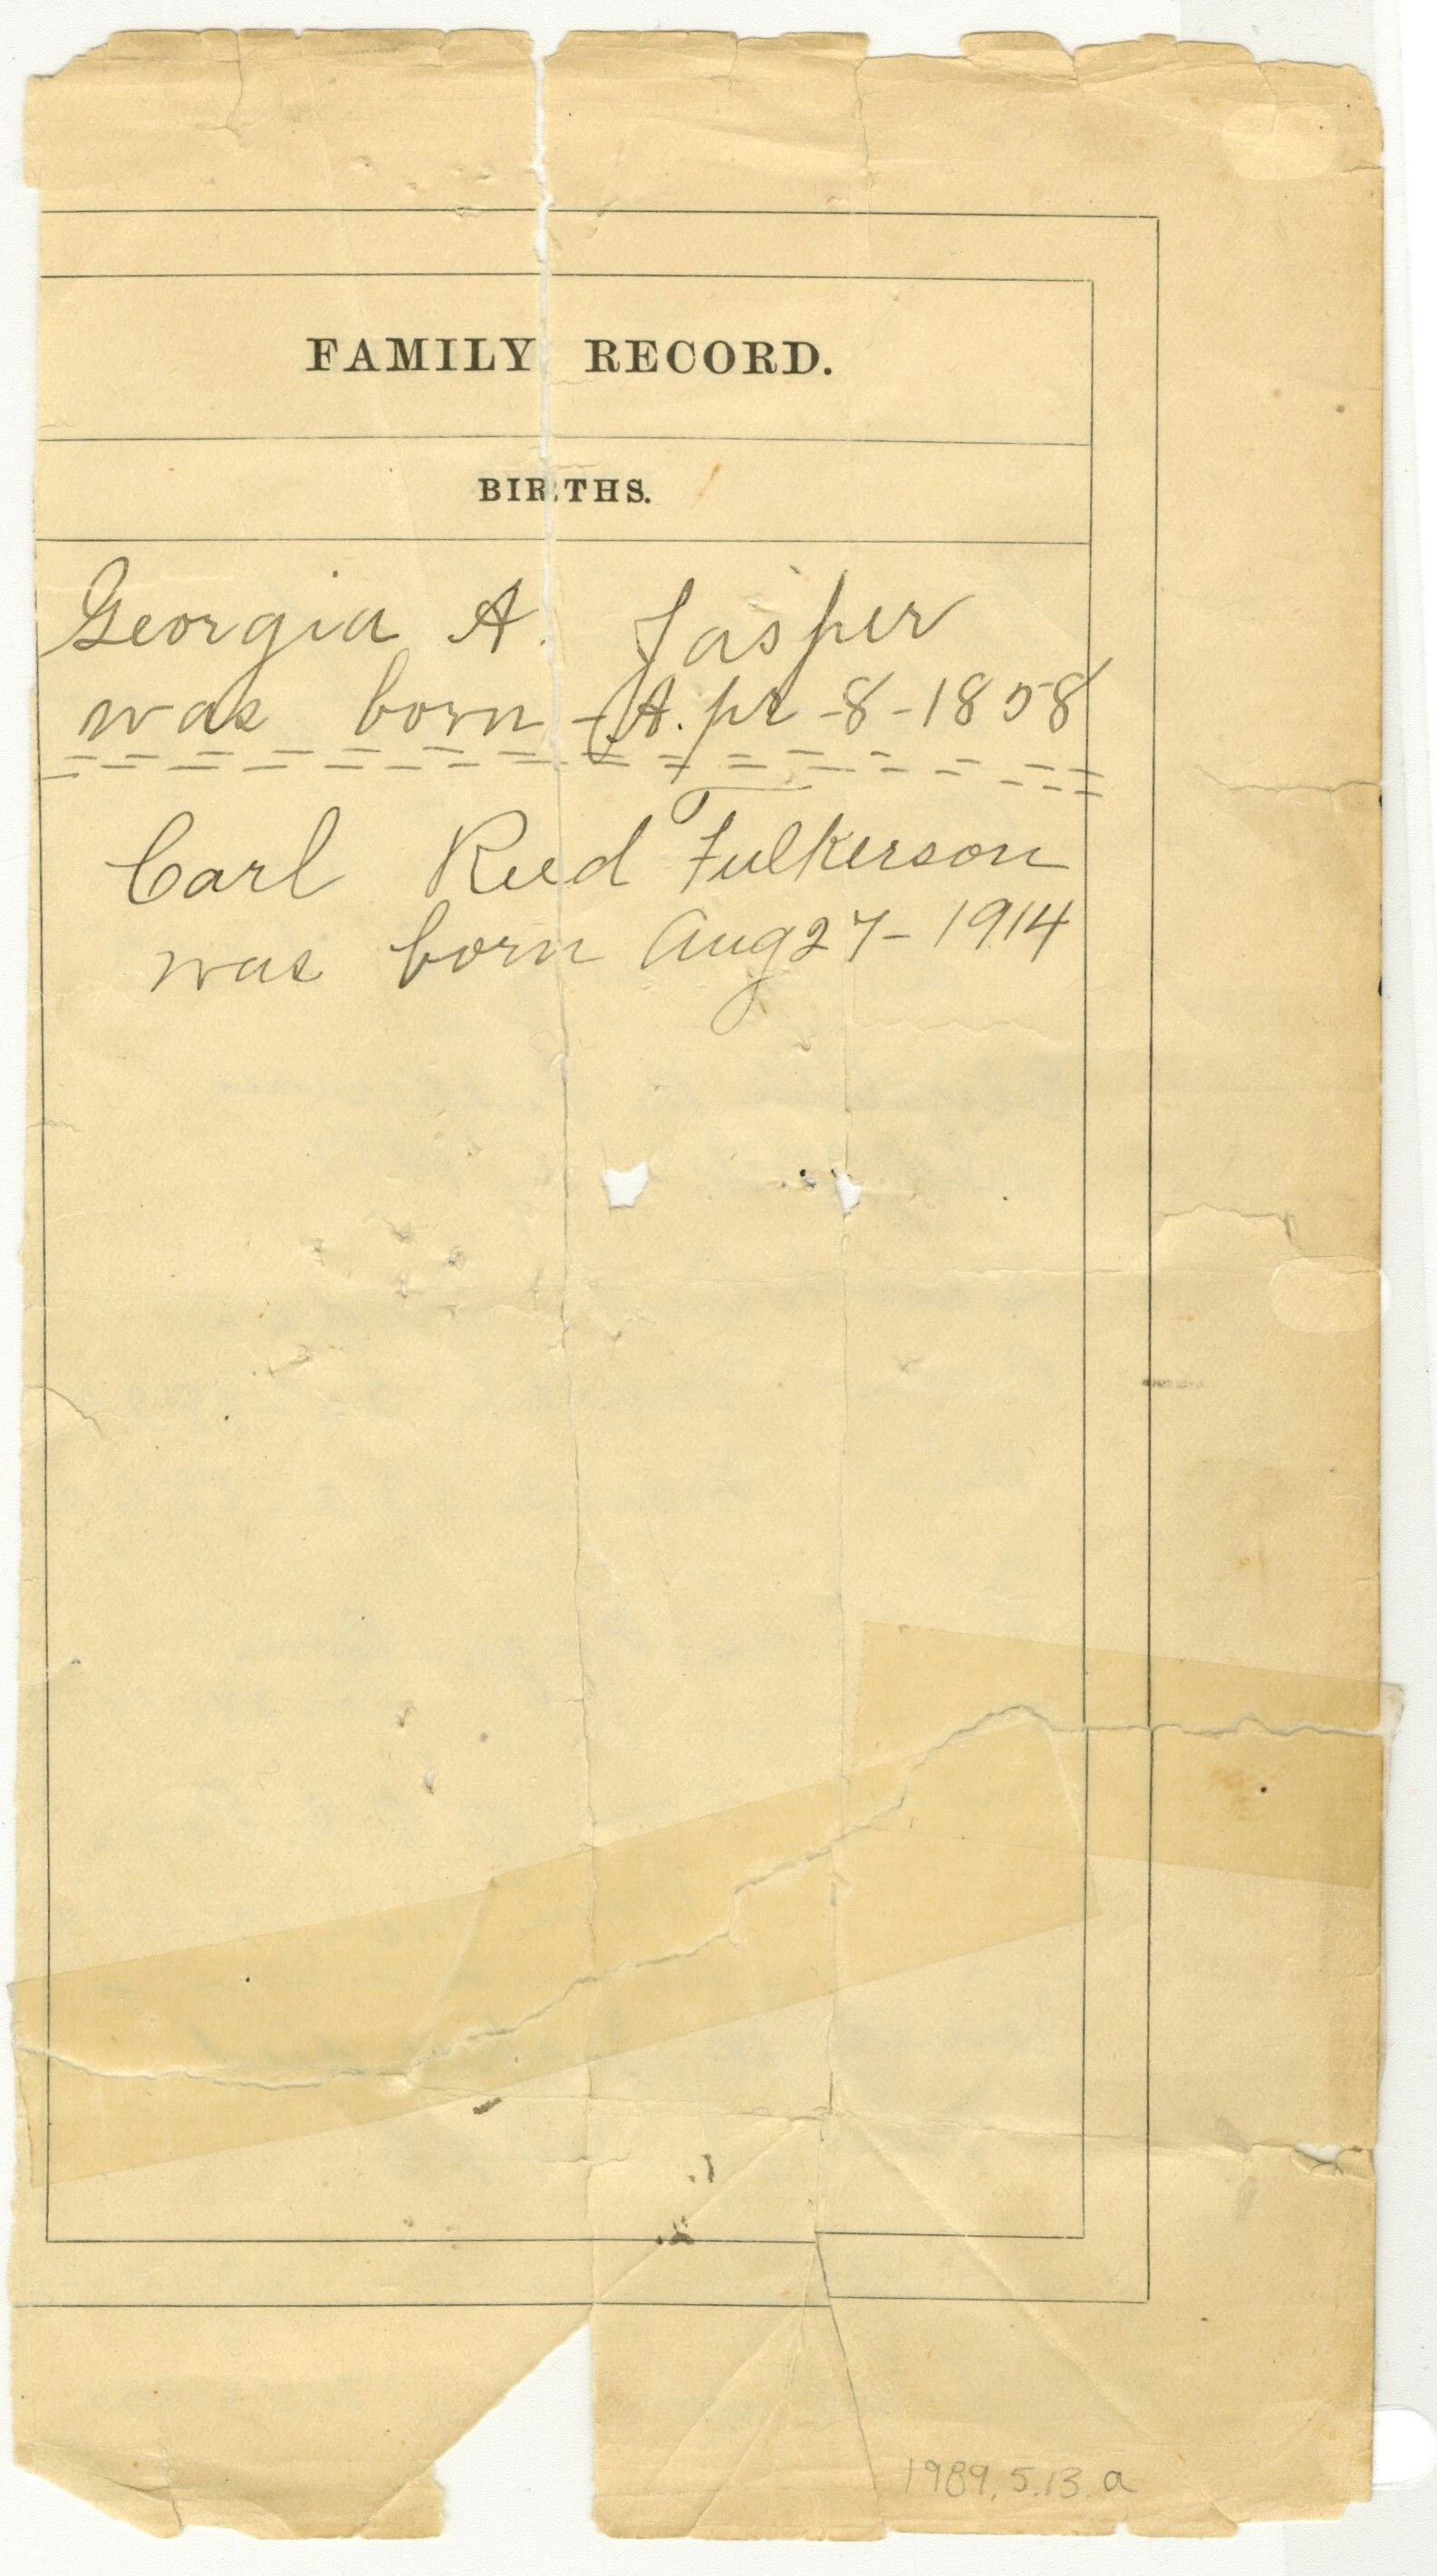 FAMILY RECORD.
BIRTHS.
Georgia A. Jasper
was born - Apr - 8 - 1858
Carl Reed Fulkerson
was born Aug 27 - 1914
1989.5.13.a